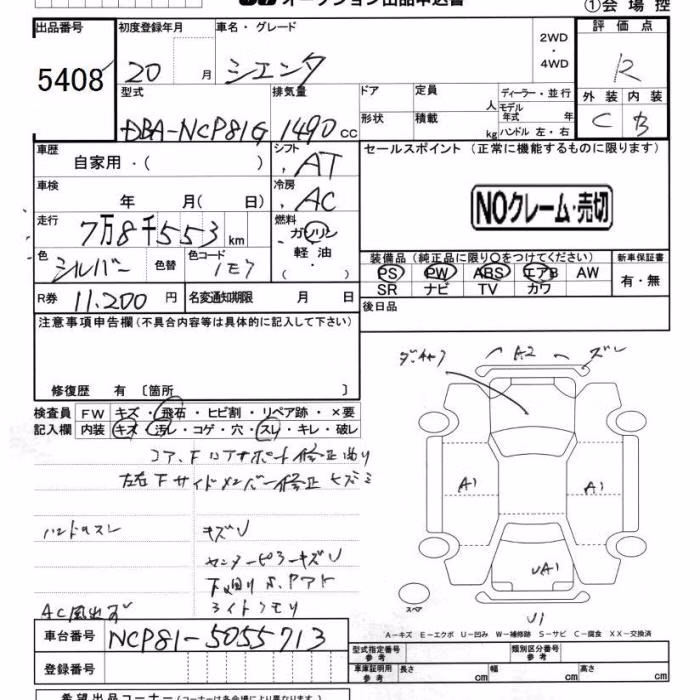 オークション出品申込書
①会場控
出品番号
5408
初度登録年月
20 月
車名・グレード
シエンタ
2WD
・
4WD
評価点
R
外装 内装
C B
型式
DBA-NCP81G
排気量
1490 cc
ドア
形状
定員
人
積載
kg
ディーラー・並行
モデル年式 年
ハンドル 左・右
車歴
自家用・( )
シフト
AT
セールスポイント (正常に機能するものに限ります)
NOクレーム・売切
車検
年 月( 日)
冷房
AC
走行
7万8千553 km
燃料
ガソリン
軽油
( )
色
シルバー
色替
色コード
1E7
装備品(純正品に限り○をつけてください)
PS PW ABS エアB AW
SR ナビ TV カワ
新車保証書
有・無
R券 11.200 円
名変通知期限 月 日
後日品
注意事項申告欄(不具合内容等は具体的に記入して下さい)
修復歴 有 〔箇所 〕
検査員
記入欄
FW キズ・飛石・ヒビ割・リペア跡・×要
内装 キズ・汚レ・コゲ・穴・スレ・キレ・破レ
コア、Fロアサポート修正あり
左右Fサイドメンバー修正 ヒズミ
ハンドルスレ
キズU
センターピラーキズU
下廻りS.Pアト
ライトクモリ
AC風出ず
A2
ズレ
A1
A1
UA1
U1
スペア
A-キズ E-エクボ U-凹み W-補修跡 S-サビ C-腐食 XX-交換済
車台番号
NCP81-5055713
登録番号
型式指定番号
参考
類別区分番号
参考
車庫証明用
参考
長さ cm
幅 cm
高さ cm
希望出品コーナー(コーナーは各会場により異なります。)